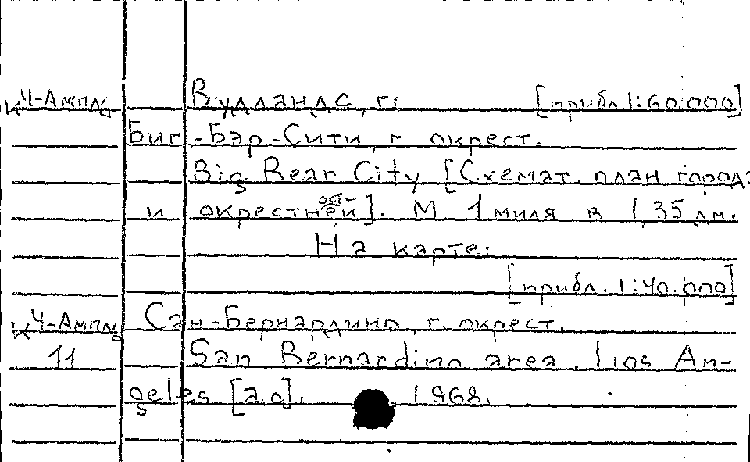 К Ч-Ампл Вудландс, г. [прибл 1:60.000]
Биг-Бэр-Сити, г. окрест.
Big Bear City [Схемат. план города
и окрестностей]. М 1 миля в 1,35 дм.
На карте:
[прибл. 1:40.000]
К Ч-Ампл Сан-Бернардино, г. окрест.
11 San Bernardino area. Los An-
geles [a.o]. 1968.